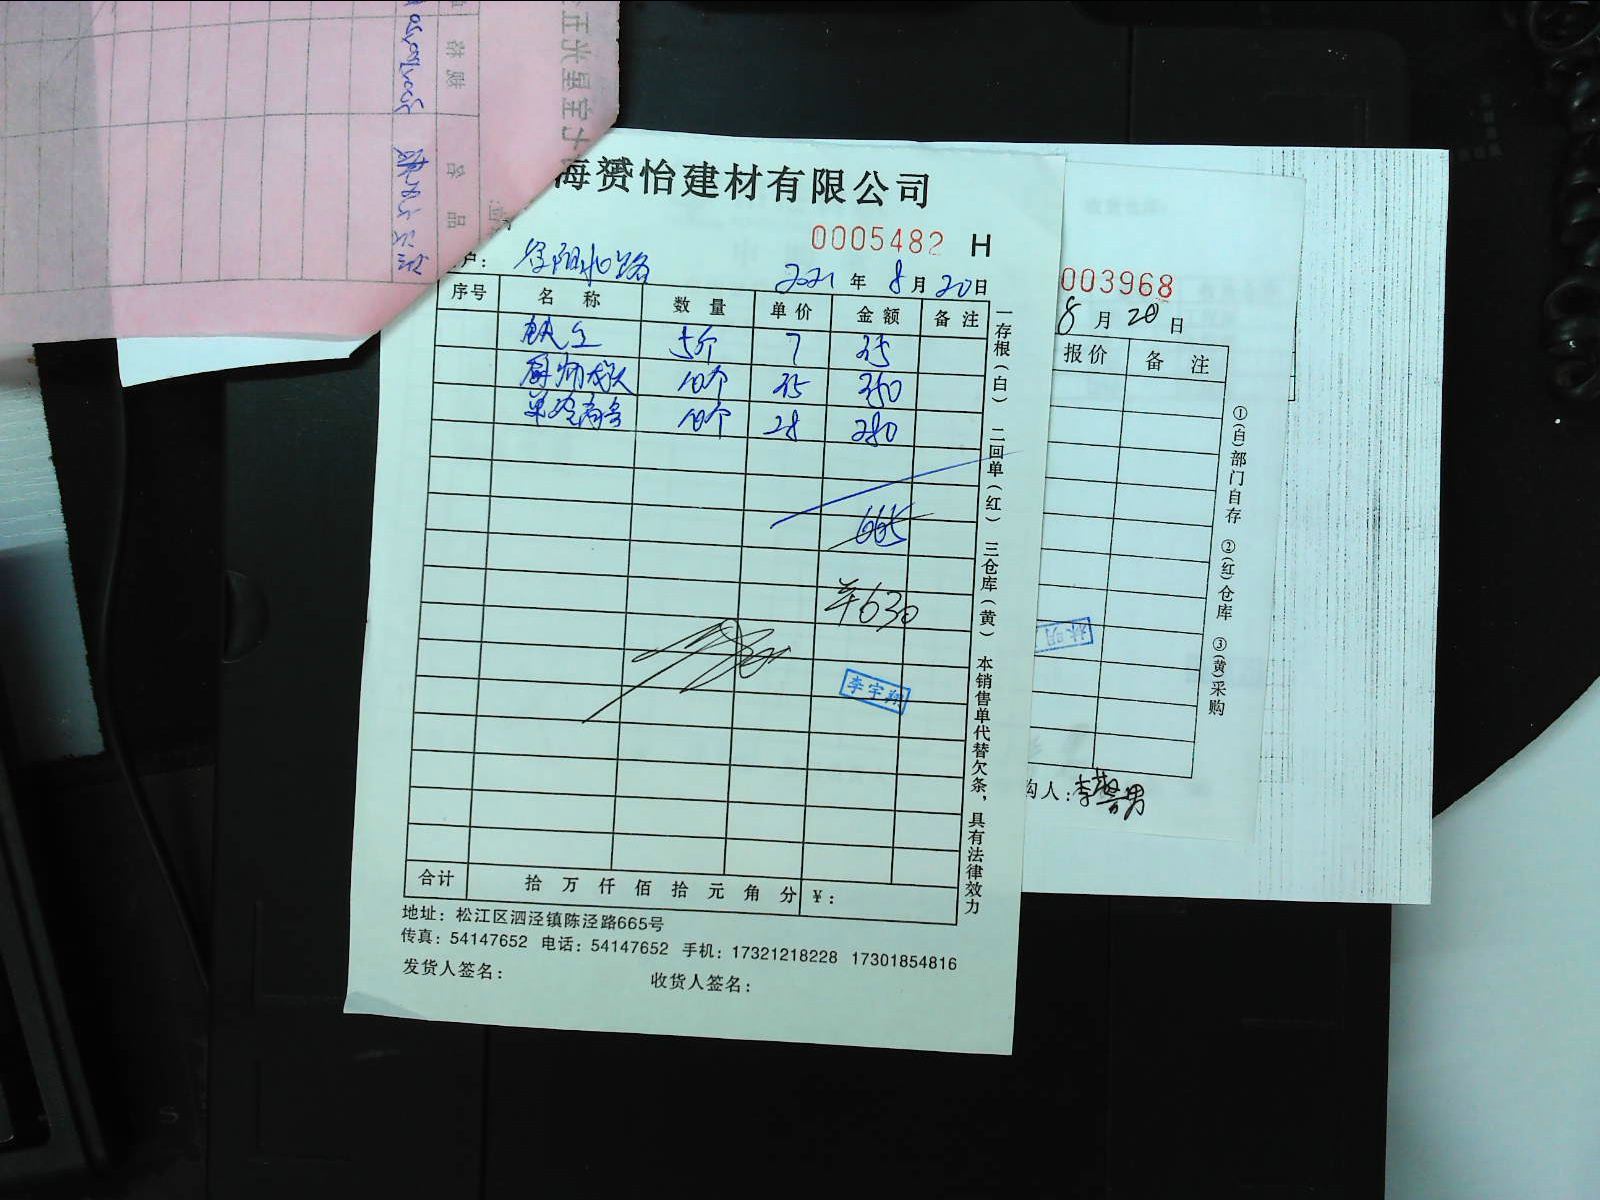 海赟怡建材有限公司
0005482 H
户：
2021 年 8 月 20 日
序号 名 称 数 量 单价 金额 备 注
5个 7 35
10个 35 350
单冷 10个 28 280
665
¥630
李宇翔
合计 拾 万 仟 佰 拾 元 角 分 ¥：
地址：松江区泗泾镇陈泾路665号
传真：54147652 电话：54147652 手机：17321218228 17301854816
发货人签名： 收货人签名：
一存根（白） 二回单（红） 三仓库（黄） 本销售单代替欠条，具有法律效力
003968
8 月 20 日
报价 备 注
①(白)部门自存 ②(红)仓库 ③(黄)采购
购人：李馨男
品 名